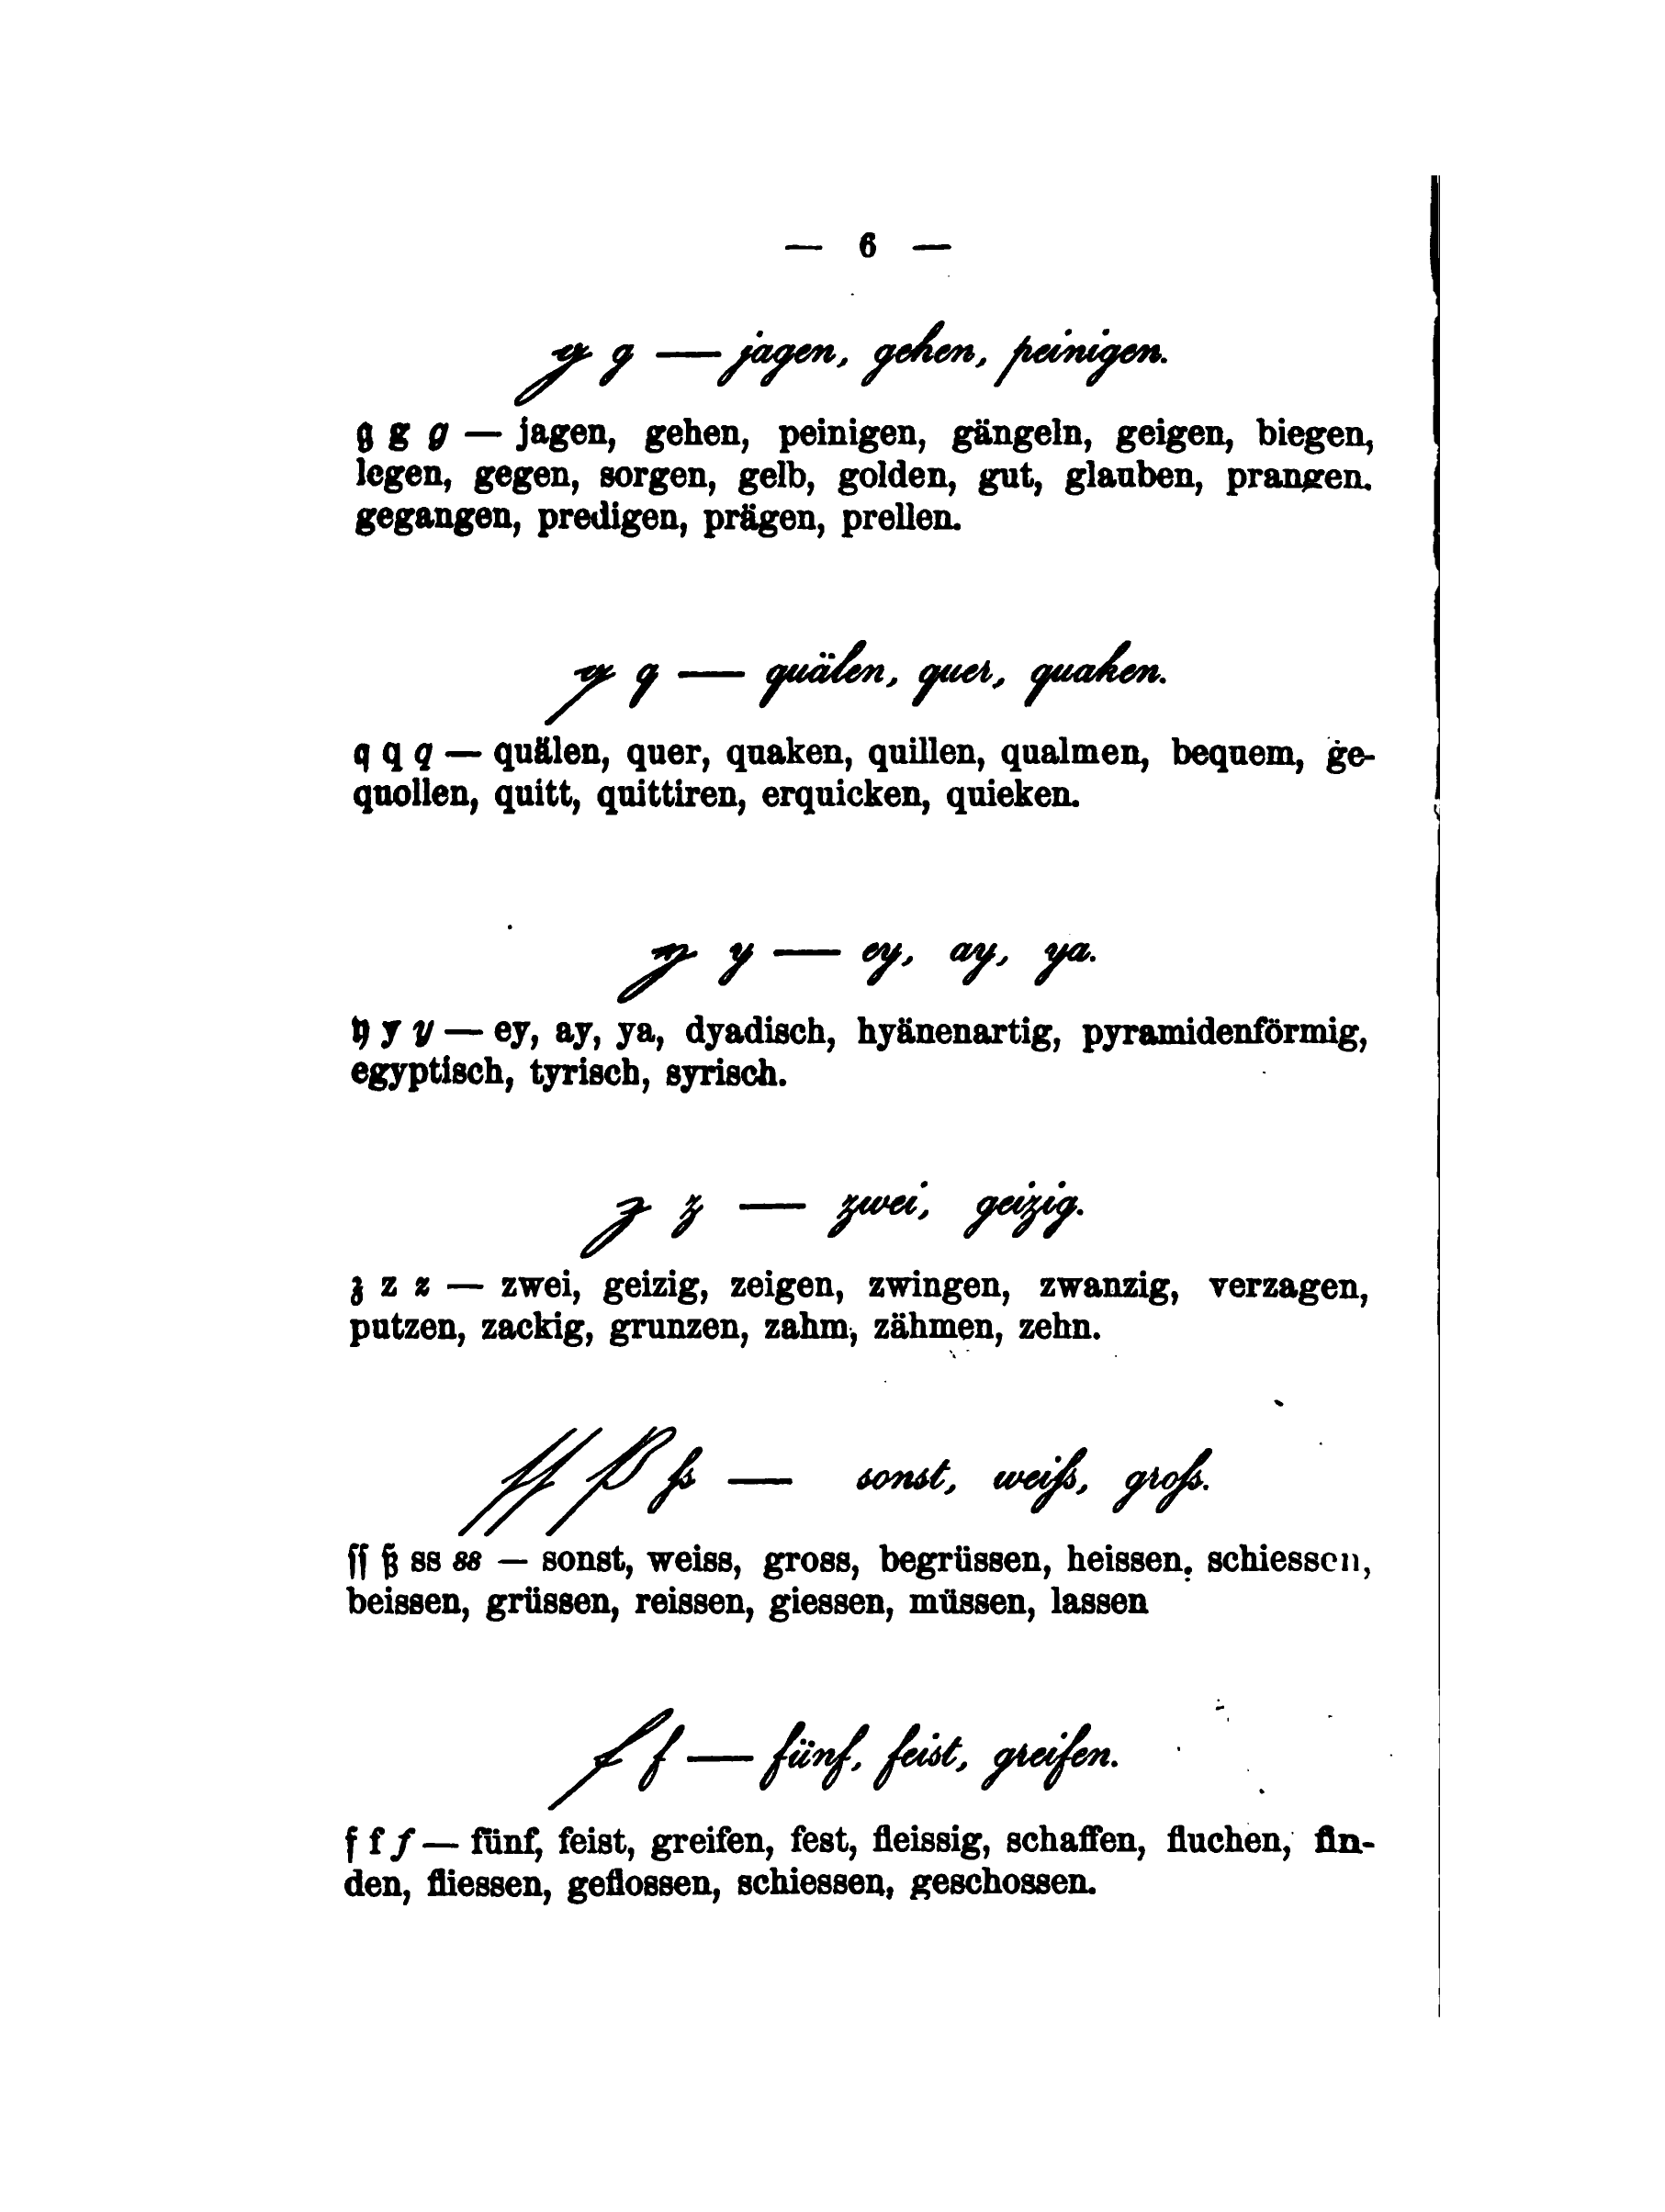 — 6 —
g g — jagen, gehen, peinigen.
g g g — jagen, gehen, peinigen, gängeln, geigen, biegen,
legen, gegen, sorgen, gelb, golden, gut, glauben, prangen.
gegangen, predigen, prägen, prellen.
q q — quälen, quer, quaken.
q q q — quälen, quer, quaken, quillen, qualmen, bequem, ge-
quollen, quitt, quittiren, erquicken, quieken.
y y — ey, ay, ya.
y y y — ey, ay, ya, dyadisch, hyänenartig, pyramidenförmig,
egyptisch, tyrisch, syrisch.
z z — zwei, geizig.
z z z — zwei, geizig, zeigen, zwingen, zwanzig, verzagen,
putzen, zackig, grunzen, zahm, zähmen, zehn.
ſſ ß ſs — sonst, weiſs, groſs.
ſſ ß ss ss — sonst, weiss, gross, begrüssen, heissen, schiessen,
beissen, grüssen, reissen, giessen, müssen, lassen
f f — fünf, feist, greifen.
f f f — fünf, feist, greifen, fest, fleissig, schaffen, fluchen, fin-
den, fliessen, geflossen, schiessen, geschossen.